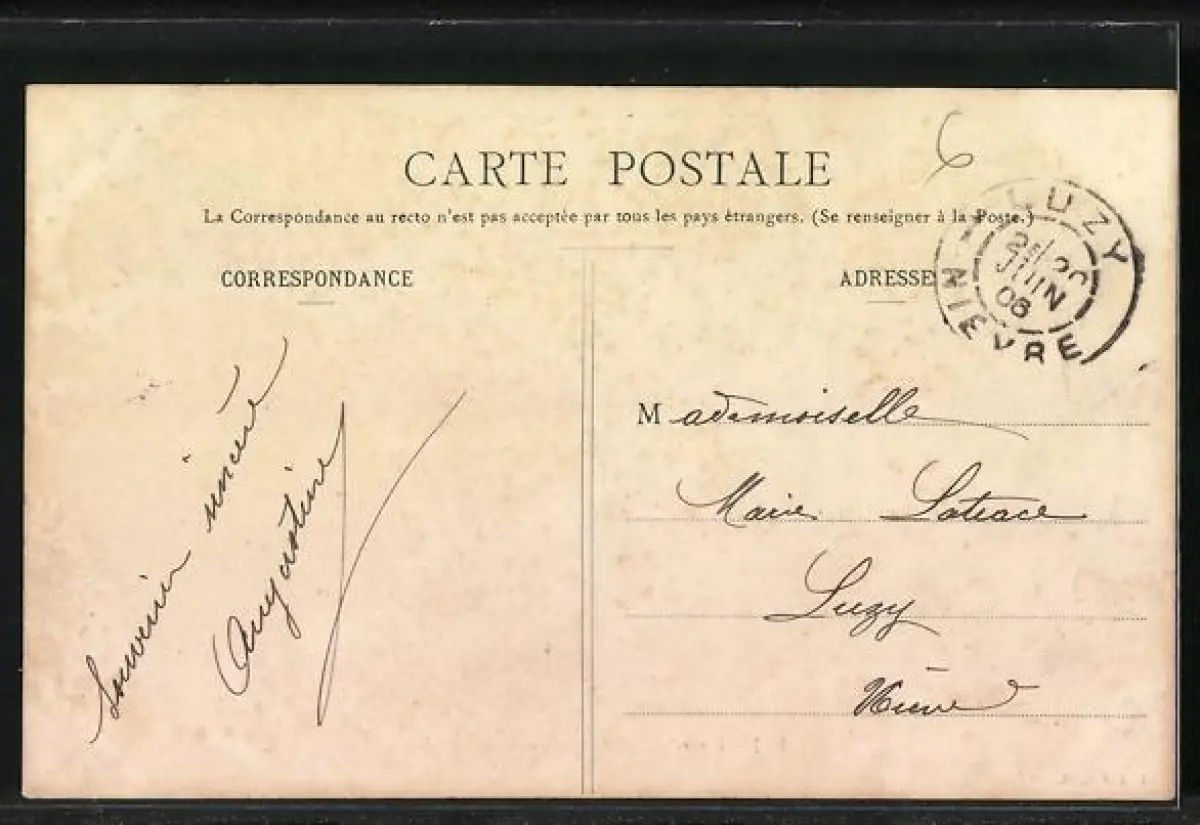 6
CARTE POSTALE
La Correspondance au recto n'est pas acceptée par tous les pays étrangers. (Se renseigner à la Poste.)
CORRESPONDANCE
ADRESSE
LUZY
JUIN
06
NIÈVRE
Souvenir sincère
Augustine
Mademoiselle
Marie
Luzy
Nièvre